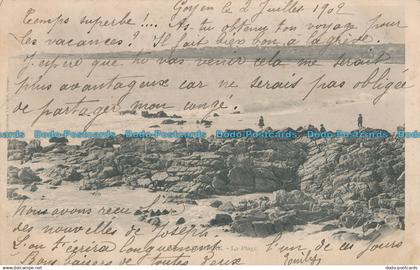 Goyen le 2 Juillet 1902
Temps superbe !... As-tu obtenu ton voyage pour
les vacances? Il fait bien bon à la
J'espère que tu vas venir cela me serait
plus avantageux car ne serais pas obligée
de partager mon congé.
Nous avons reçu
des nouvelles de Joseph
- La Plage
L'on t'écrira longuement l'un de ces jours
Bons baisers de toutes deux